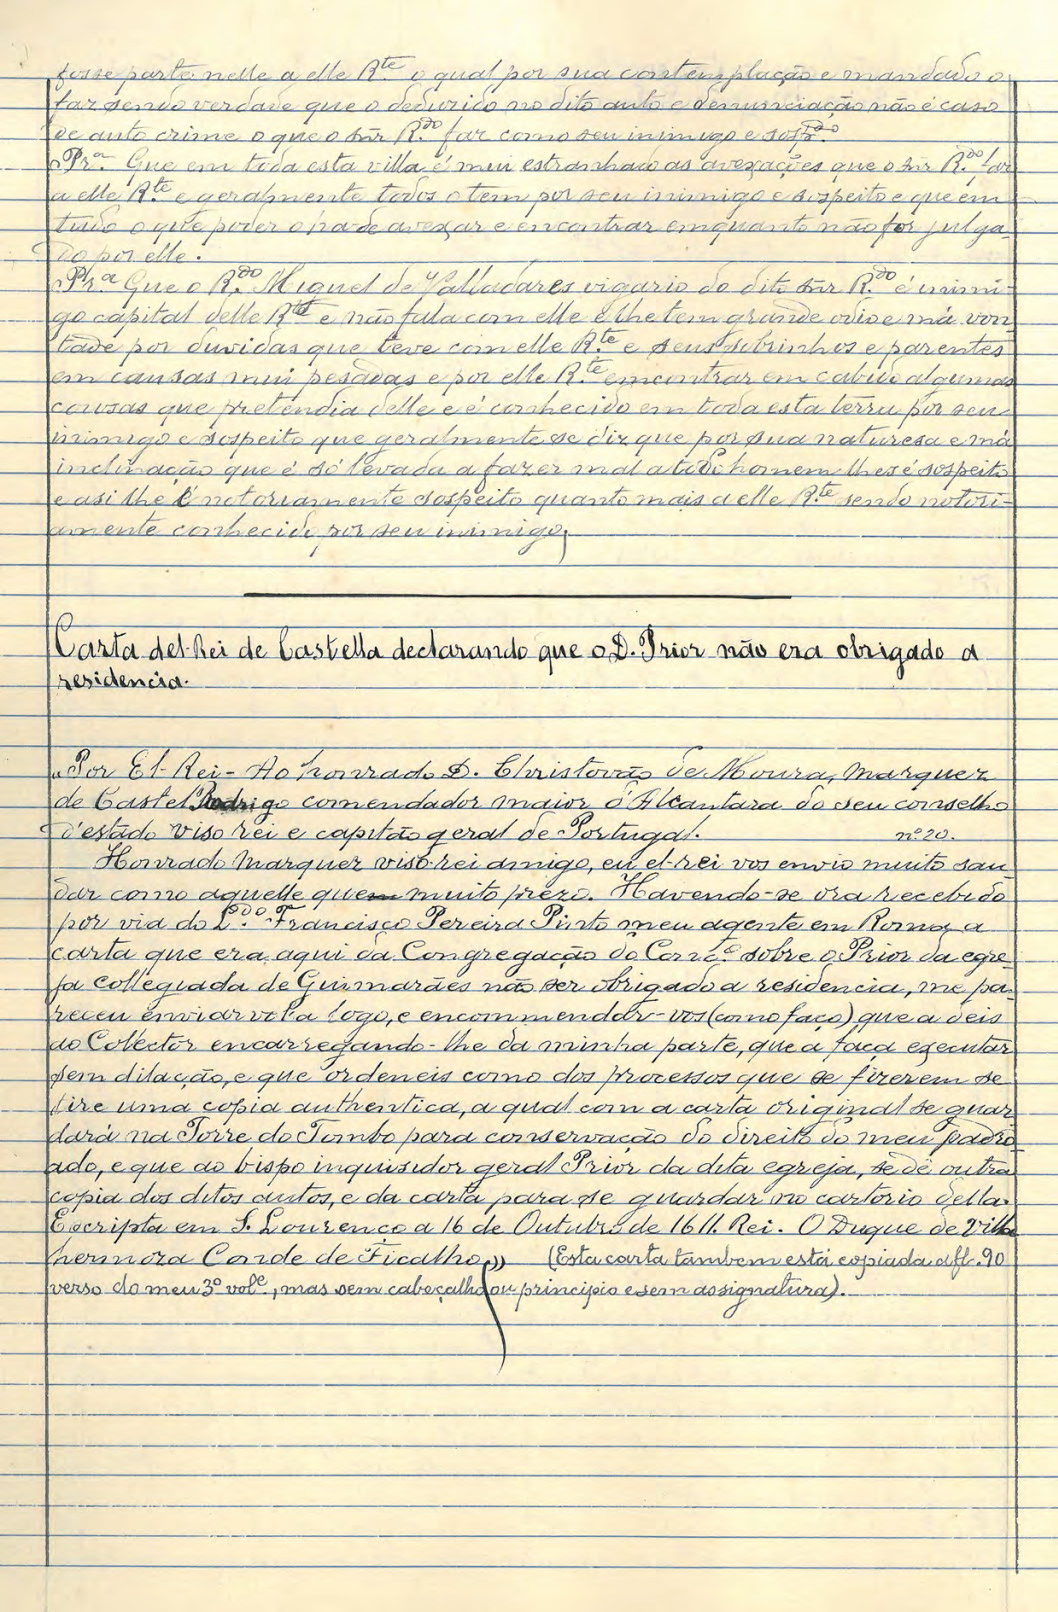 fosse parte nelle a elle R.te o qual por sua contemplação e mandado o
faz sendo verdade que o deduzido no dito auto e denunciação não é caso
de auto crime o que o snr R.do faz como seu inimigo e sosp.to
Pr.a Que em toda esta villa é mui estranhado as avexações que o snr R.do faz
a elle R.te e geralmente todos o tem por seu inimigo e sospeito e que em
tudo o que poder o ha de avexar e encontrar emquanto não for julga-
do por elle.
Pr.a Que o R.do Miguel de Valladares vigario do dito snr R.do é inimi-
go capital delle R.te e não fala com elle e lhe tem grande odio e má von-
tade por duvidas que teve com elle R.te e seus sobrinhos e parentes
em causas mui pesadas e por elle R.te encontrar em cabido algumas
cousas que pretendia delle e é conhecido em toda esta terra por seu
inimigo e sospeito que geralmente se diz que por sua naturesa e má
inclinação que é só levada a fazer mal a todo homem lhes é sospeito
e asi lhe é notoriamente sospeito quanto mais a elle R.te sendo notori-
amente conhecido por seu inimigo,
Carta del-Rei de Castella declarando que o D. Prior não era obrigado a
residencia.
"Por El-Rei - Ao honrado D. Christovão de Moura, Marquez
de Castel Rodrigo comendador maior d'Alcantara do seu conselho
d'estado viso rei e capitão geral de Portugal. nº 20.
Honrado Marquez viso-rei amigo, eu el-rei vos envio muito sau-
dar como aquelle que muito prezo. Havendo-se ora recebido
por via do L.do Francisco Pereira Pinto meu agente em Roma, a
carta que era aqui da Congregação do Conc.º sobre o Prior da egre-
ja collegiada de Guimarães não ser obrigado a residencia, me pa-
receu enviar vol-a logo, e encommendar-vos (como faço) que a deis
ao Colector encarregando-lhe da minha parte, que a faça executar
sem dilação, e que ordeneis como dos processos que se fizerem se
tire uma copia authentica, a qual com a carta original se guar
dará na Torre do Tombo para conservação do direito do meu padro
ado, e que ao bispo inquisidor geral Prior da dita egreja, se dê outra
copia dos ditos autos, e da carta para se guardar no cartorio della.
Escripta em S. Lourenço a 16 de Outubro de 1611. Rei. O Duque de Villa
hermoza Conde de Ficalho,,» (Esta carta tambem está copiada a fl. 90
verso do meu 3º vol.e, mas sem cabeçalho ou principio e sem assignatura).